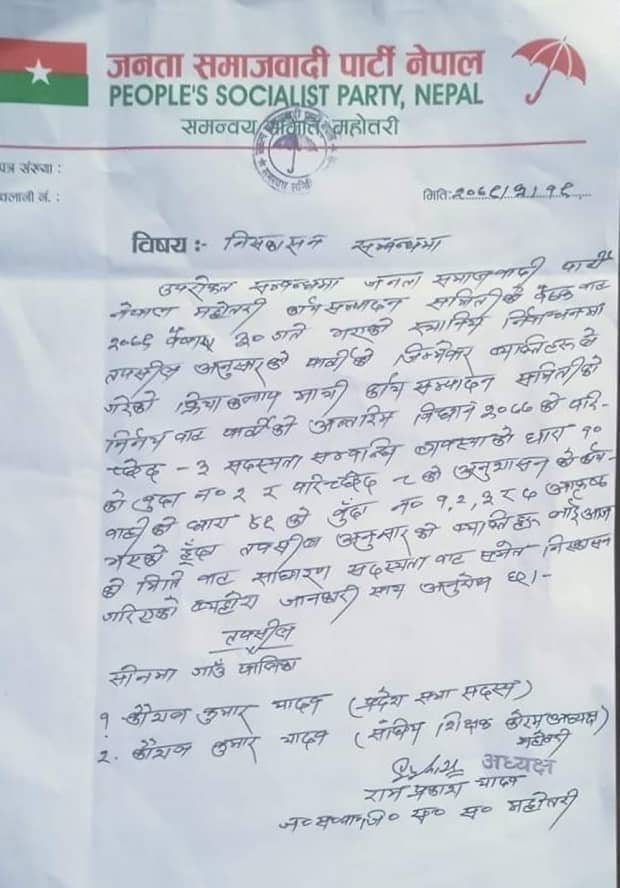 जनता समाजवादी पार्टी नेपाल
PEOPLE'S SOCIALIST PARTY, NEPAL
समन्वय समिति, महोत्तरी
पत्र संख्या :
चलानी नं. :
मिति:२०७९/५/१९
विषय :- निष्कासन सम्बन्धमा
उपरोक्त सम्बन्धमा जनता समाजवादी पार्टी
नेपाल महोत्तरी कार्य सम्पादन समितिको बैठक बाट
२०७९ बैशाख ३० गते भएको स्थानिय निर्वाचनमा
तपसील अनुसारको पार्टीको जिम्मेवार व्यक्तिहरुले
गरेको क्रियाकलाप माथी कार्य सम्पादन समितिको
निर्णय बाट पार्टीको अन्तरिम विधान २०७७ को परि-
च्छेद - ३ सदस्यता सम्बन्धि व्यवस्थाको धारा १०
को बुदा न० २ र परिच्छेद ८ को अनुशासन को
को धारा ४९ को बुँदा न० १, २, ३ र ५
भएको हुँदा तपसील अनुसार को व्यक्तिहरु लाई आज
को मिति बाट साधारण सदस्यता बाट समेत निष्कासन
गरिएको व्यहोरा जानकारी साथ अनुरोध छ।-
तपसील
सोनमा गाउँ पालिका
१ कुमार यादव (प्रदेश सभा सदस्य)
२. कुमार यादव (संघिय शिक्षक अध्यक्ष)
महोत्तरी
अध्यक्ष
राम प्रकाश यादव
महोत्तरी